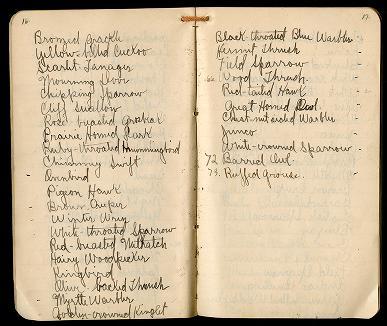 16
Bronzed Grackle
Yellow-billed Cuckoo
Scarlet Tanager
Mourning Dove
Chipping Sparrow
Cliff Swallow
Rose-breasted Grosbeak
Prairie Horned Lark
Ruby-throated Hummingbird
Chimney Swift
Ovenbird
Pigeon Hawk
Brown Creeper
Winter Wren
White-throated Sparrow
Red-breasted Nuthatch
Hairy Woodpecker
Kingbird
Olive-backed Thrush
Myrtle Warbler
Golden-crowned Kinglet
17
Black-throated Blue Warbler
Hermit Thrush
Field Sparrow
Wood Thrush
Red-tailed Hawk
Great Horned Owl
Chestnut-sided Warbler
Junco
White-crowned Sparrow
72 Barred Owl
73. Ruffed Grouse